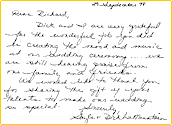 29 September 98
Dear Richard,
Dick and I are very grateful
for the wonderful job you did
in creating the mood and music
at our wedding ceremony... we
are still hearing praise from
our family and friends.
We wanted like to thank you
for sharing the gift of your
talents to make our wedding
so special. Sincerely,